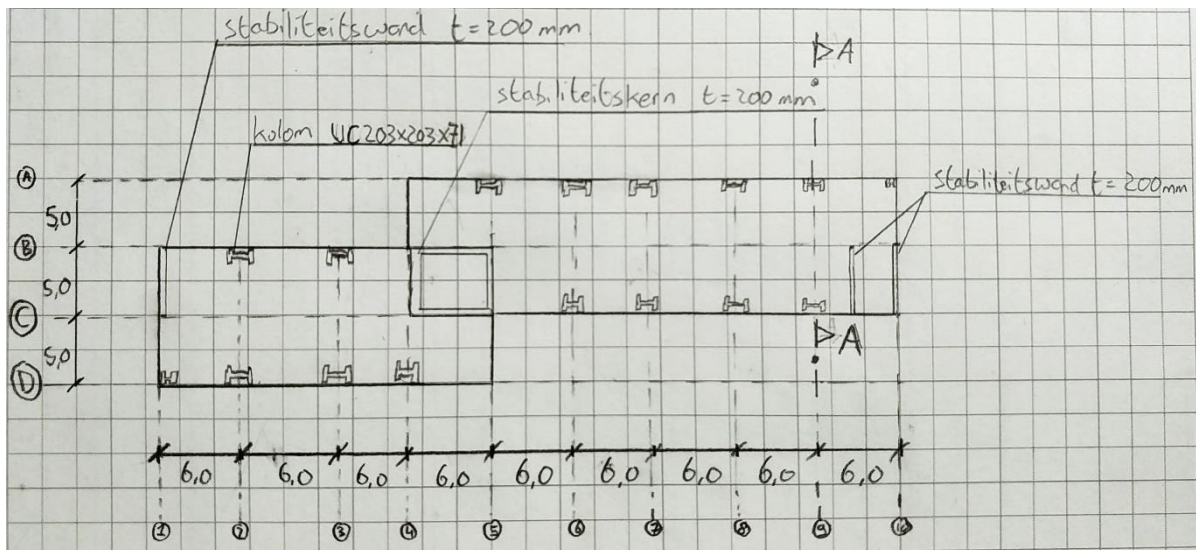 stabiliteitswand t=200mm
A
stabiliteitskern t=200mm
kolom UC203x203x71
stabiliteitswand t=200mm
A
5,0
B
5,0
C
A
5,0
D
6,0 6,0 6,0 6,0 6,0 6,0 6,0 6,0 6,0
1 2 3 4 5 6 7 8 9 10